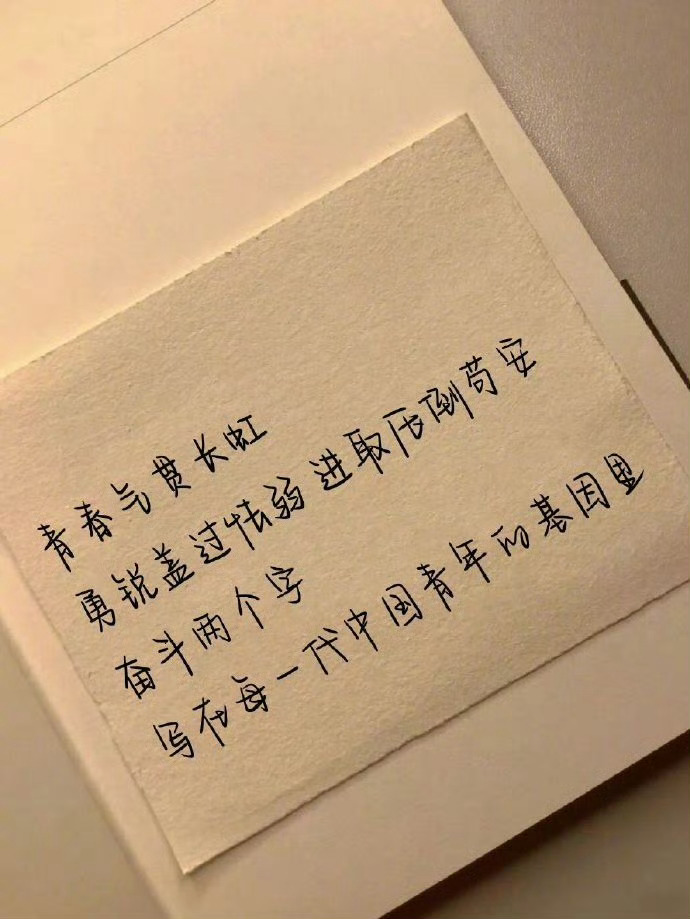 青春气贯长虹
勇锐盖过怯弱 进取压倒苟安
奋斗两个字
写在每一代中国青年的基因里